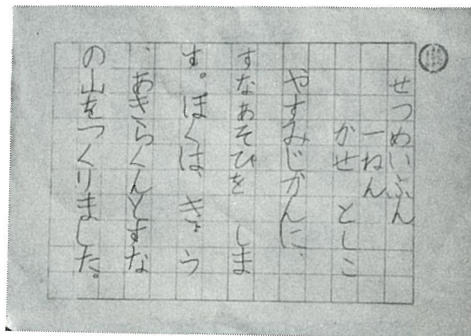 せつめいぶん
一ねん
かせ としこ
やすみじかんに、
すなあそびを しま
す。ぼくは、きょう
、あきらくんとすな
の山をつくりました。